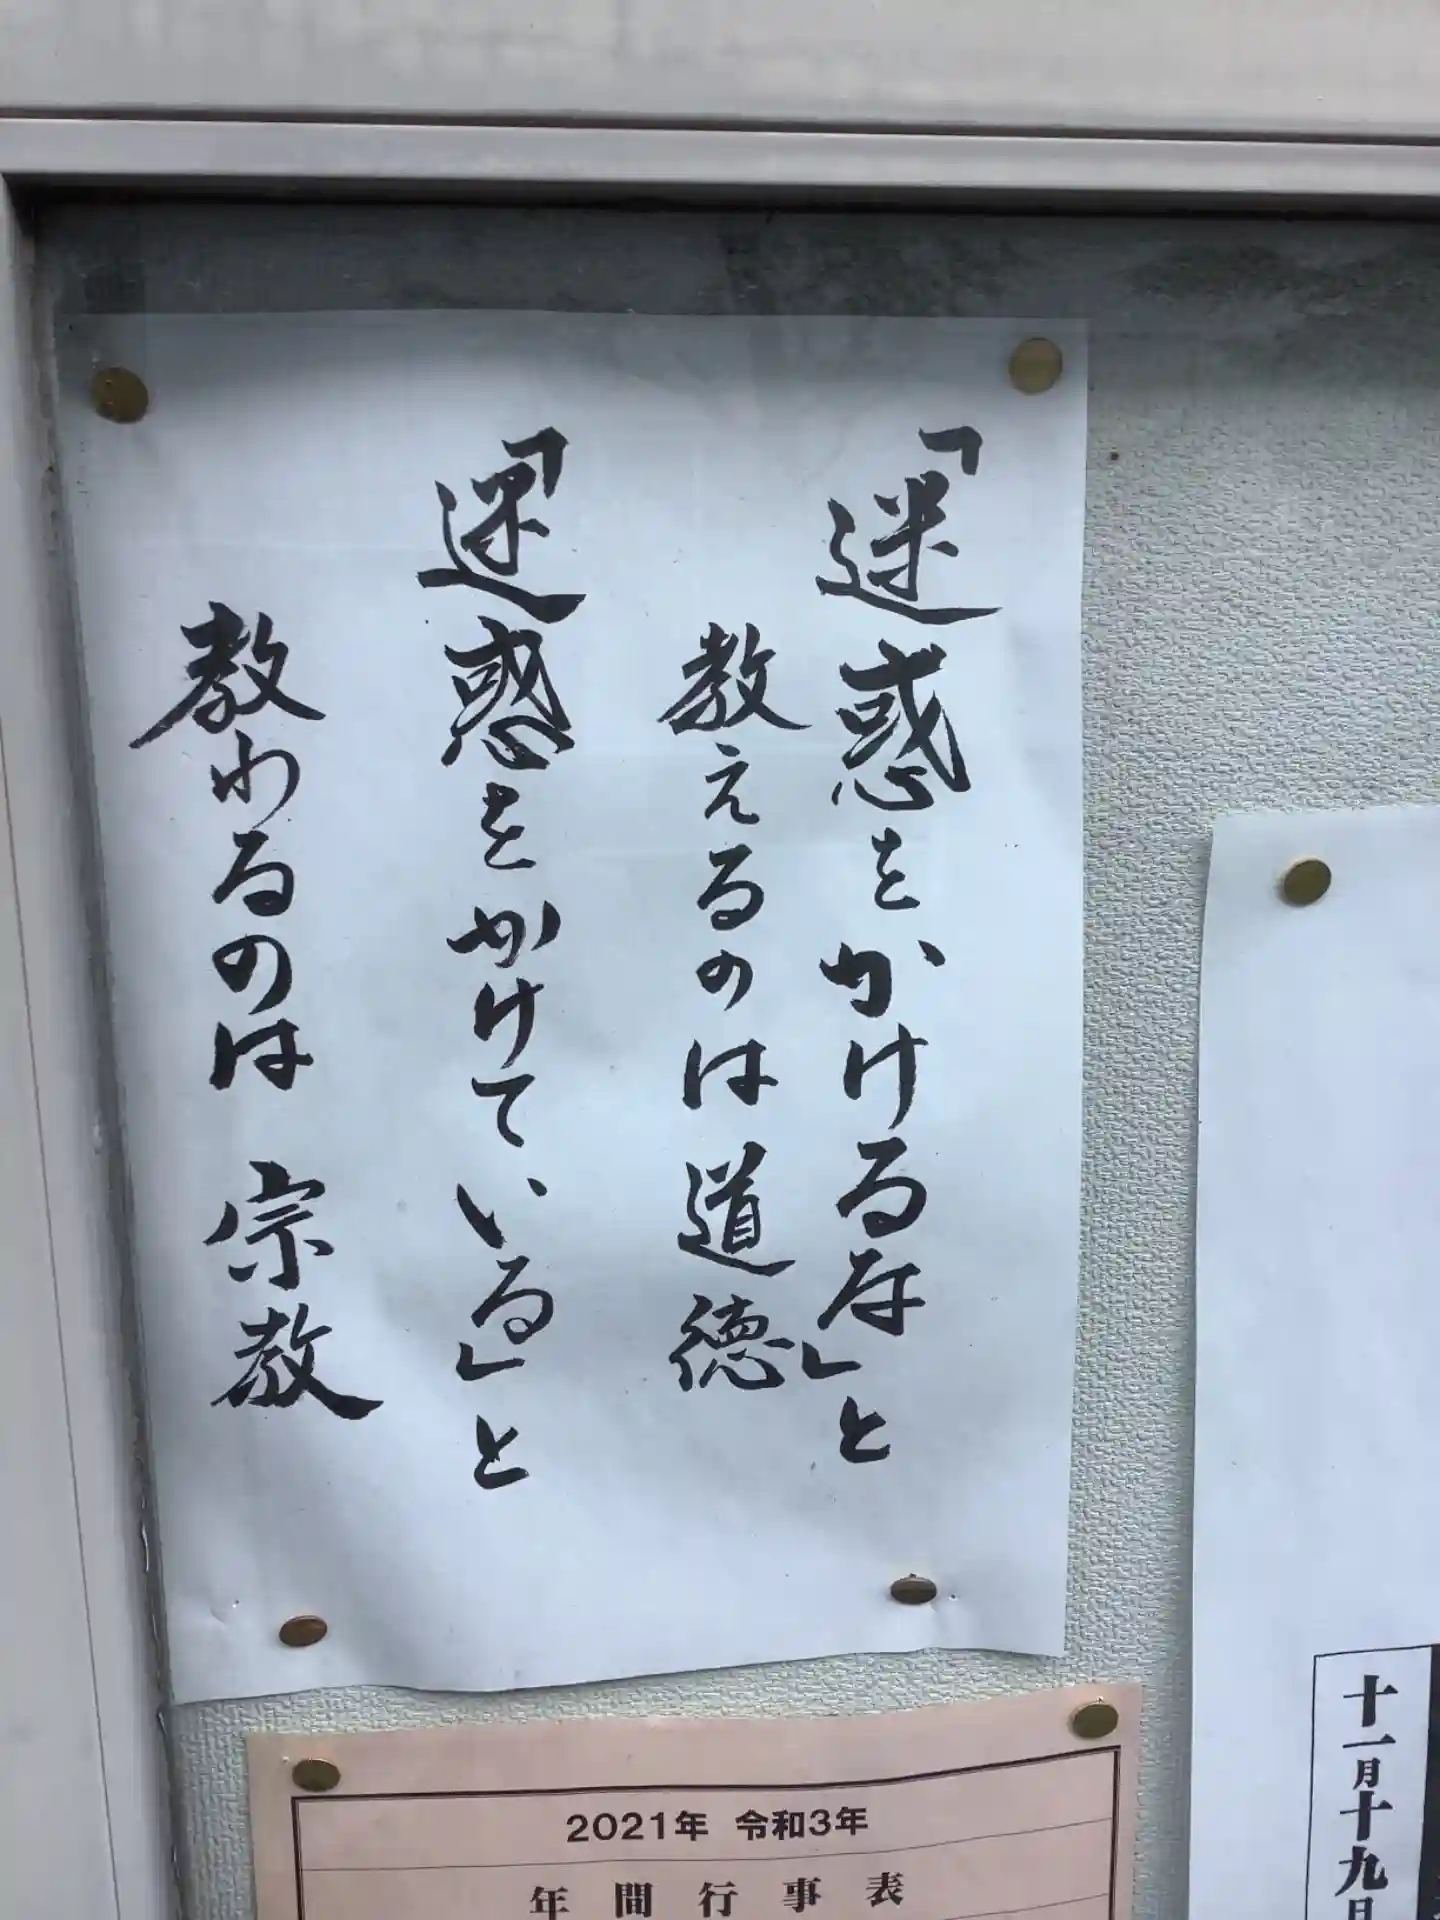 「迷惑をかけるな」と
教えるのは道徳
「迷惑をかけている」と
教わるのは宗教
2021年 令和3年
年間行事表
十一月十九日